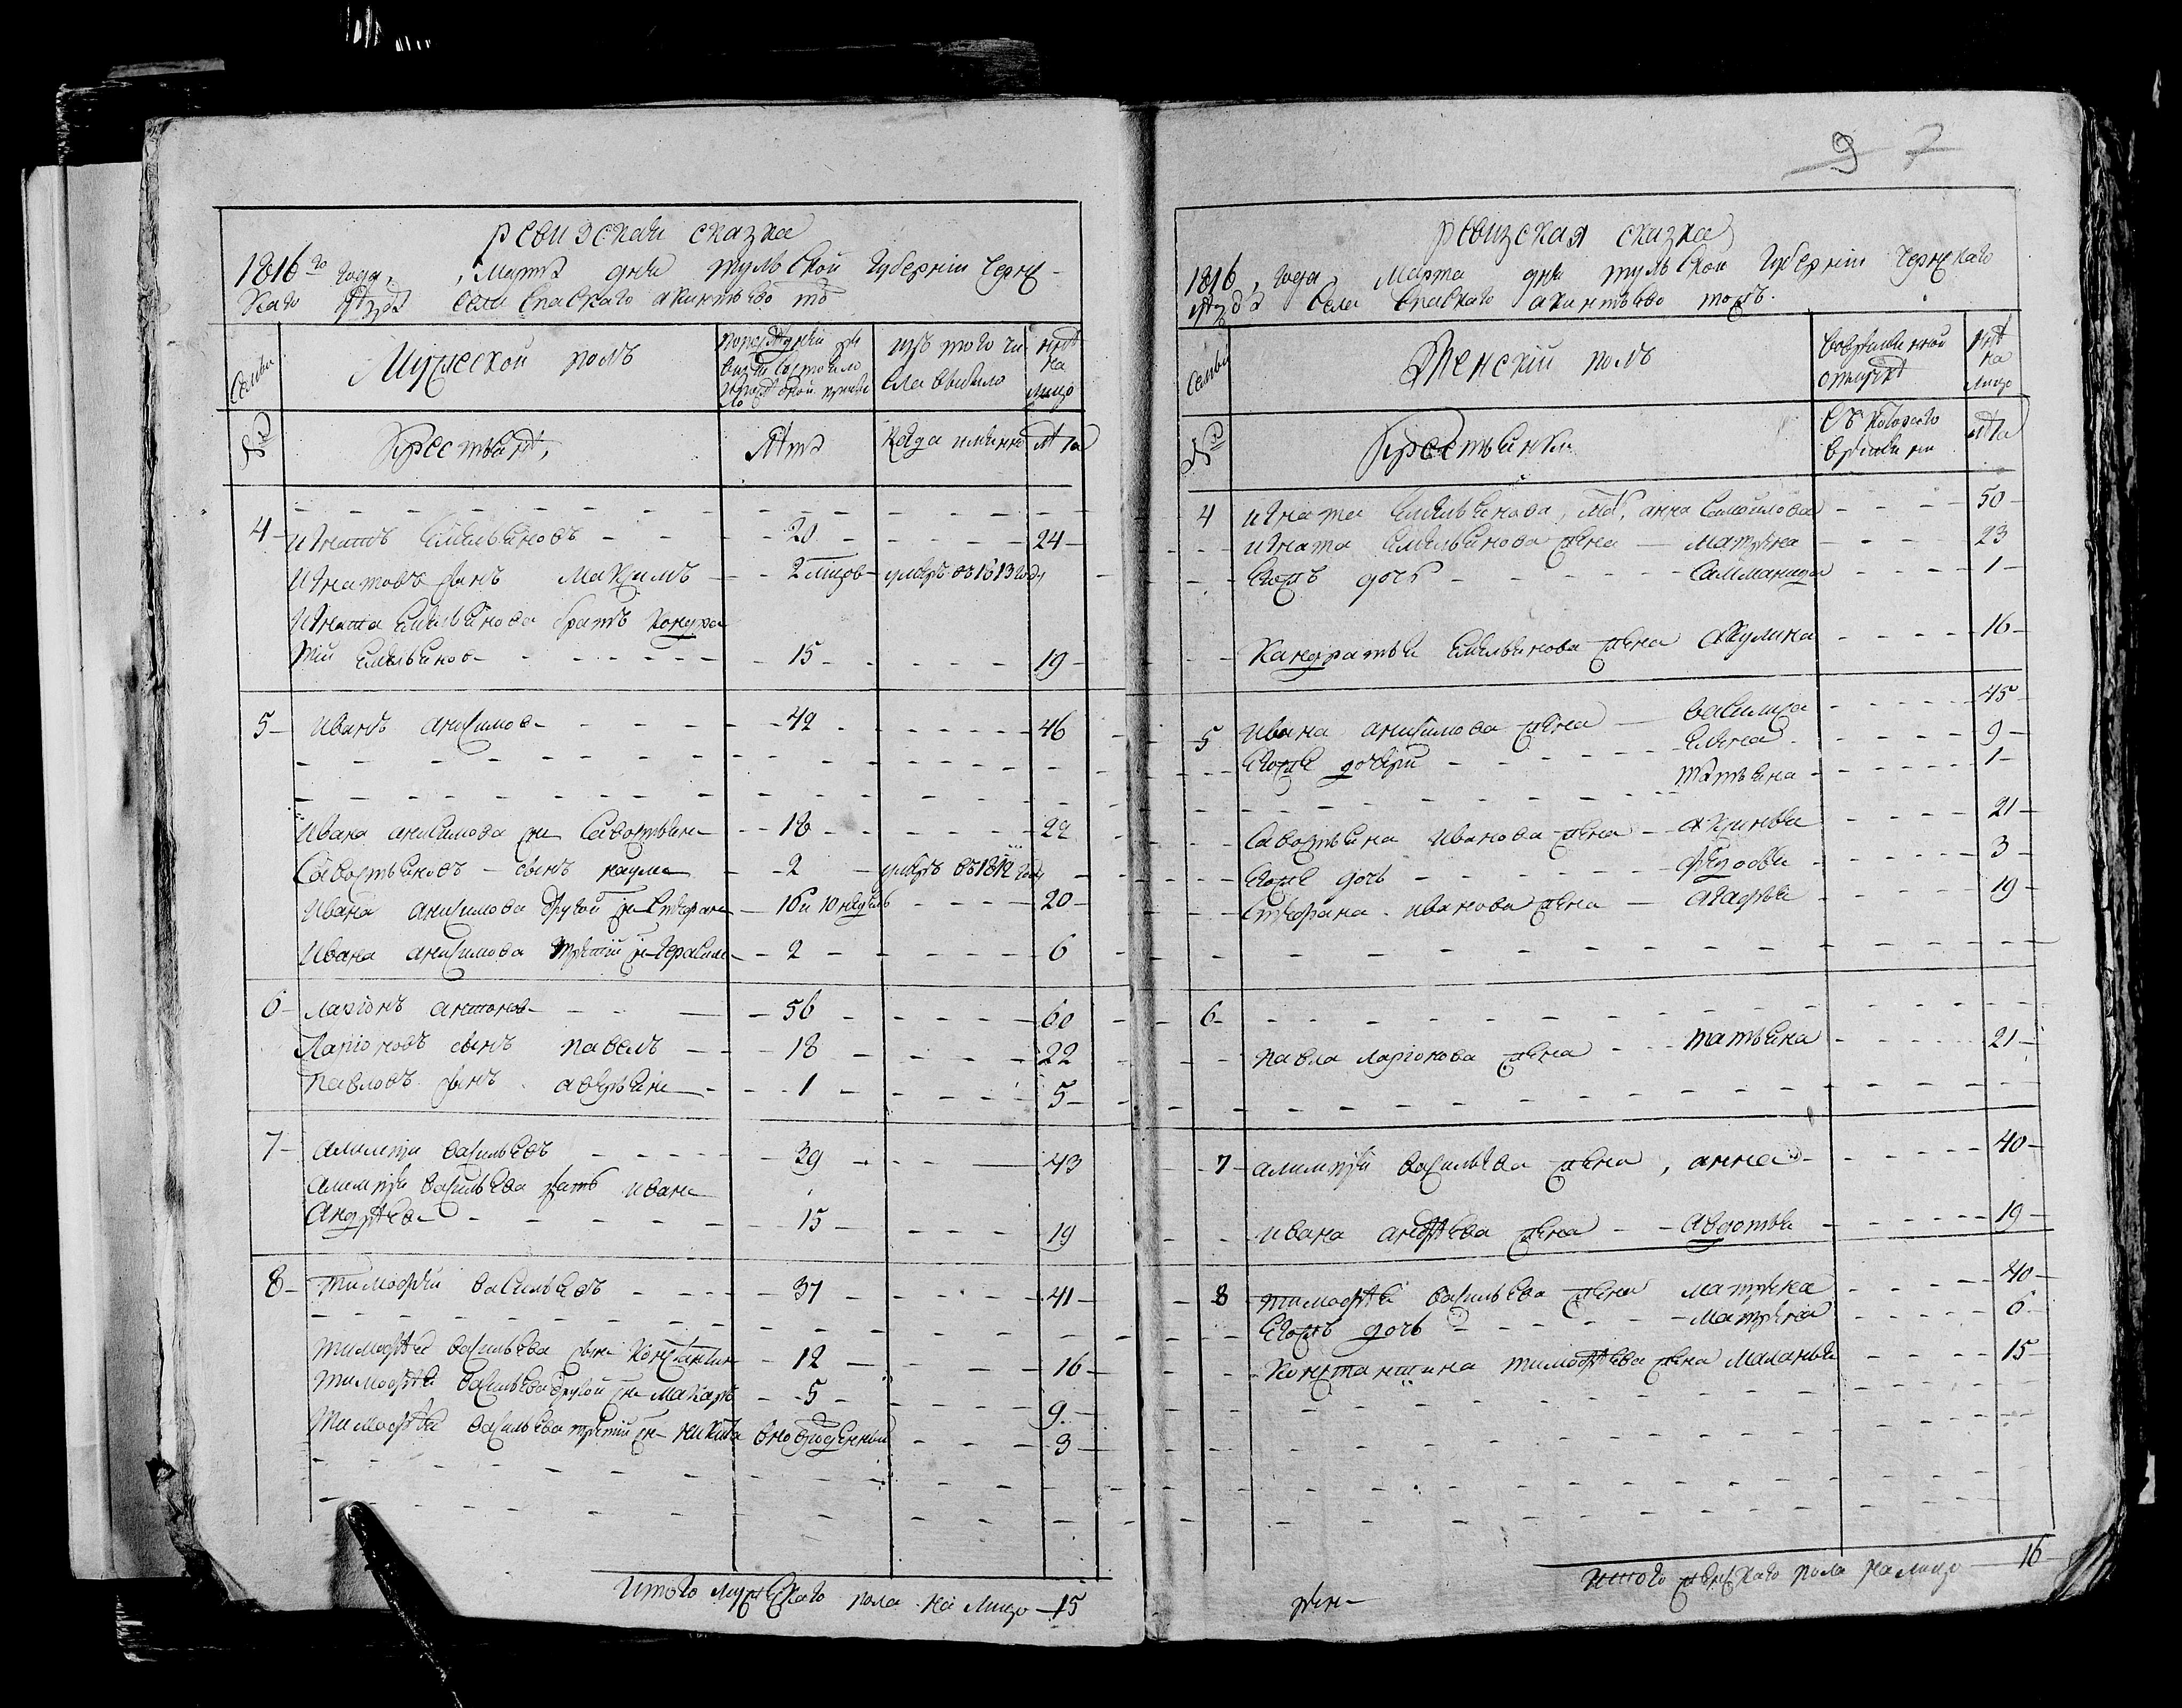 9 7
ревизская сказка
1816го года, марта дня тульской губернiи чернс-
каго уѣзда села спаскаго
Семьи
Мужеской полъ
изъ того чи
сла выбыло
нынѣ
на
лицо
№
Крестьянѣ,
Лѣта
Когда именно
лѣта
4 Игнатъ Емельяновъ 20 24
Игнатовъ сынъ Максимъ 2 умеръ въ 1813 году
Игната Емельянова братъ Кондра
тiй Емельянов 15 19
5 Иванъ анисимов 42 46
Ивана анисимова сн Савостьян 18 22
Савостьяновъ сынъ наумъ 2 умеръ въ 1812 году
Ивана анисимова другой сн Стефан 16 и 10 недѣль 20
Ивана анисимова третiй сн Герасим 2 6
6 Ларiонъ антонов 56 60
Ларiоновъ сынъ павелъ 18 22
павловъ сынъ аверьян 1 5
7 алимпiй васильевъ 39 43
алимпiя васильева братъ иван
андрѣев 15 19
8 тимофѣй васильевъ 37 41
тимофѣя васильева сын константин 12 16
тимофѣя васильева другой сн макаръ 5 9
тимофѣя васильева третiй сн никита вновьрожденный 3
итого мужескаго пола на лицо 15
ревизская сказка
1816, года, марта дня тульской губернiи чернскаго
уѣзда села спаскаго тожъ.
Семьи
Женскiй полъ
во временной
отлучкѣ
нынѣ
на
лицо
№
Крестьянки
Съ котораго
времени
лѣта
4 игната Емельянова, мать, анна самойлова 50
игната Емельянова жена матрена 23
Егожъ дочь саламанида 1
Кандратья Емельянова жена акулина 16
5 ивана анисимова жена василиса 45
Егоже дочери Елена 9
татьяна 1
савостьяна иванова жена аксинья 21
Егоже дочь федосья 3
стефана иванова жена агафья 19
6
павла ларiонова жена татьяна 21
7 алимпiя васильева жена, анна 40
ивана андрѣева жена авдотья 19
8 тимофѣя васильева жена матрена 40
Егожъ дочь матрена 6
константина тимофѣева жена маланья 15
итого женскаго пола на лицо 16